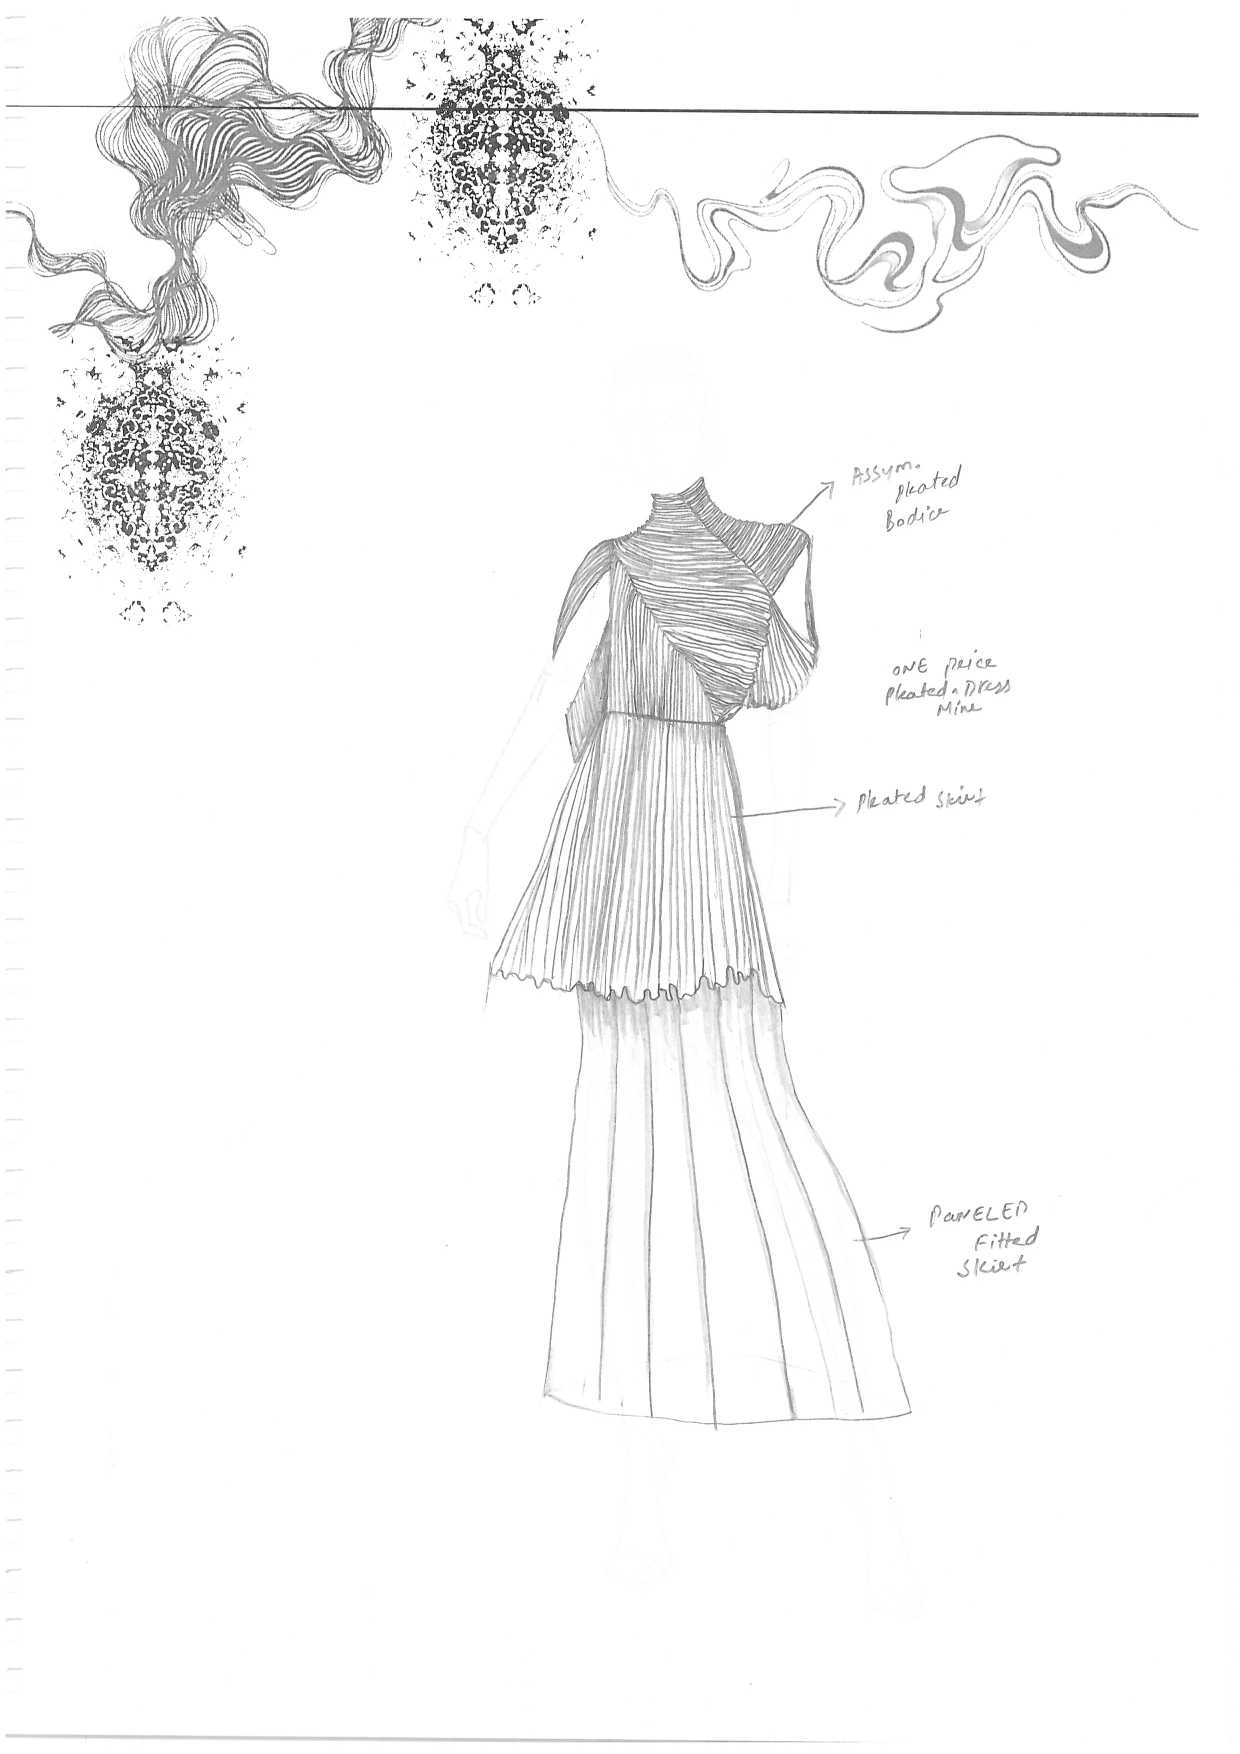 Assym.
Pleated
Bodice
ONE peice
Pleated Dress
Mine
Pleated Skirt
PANELED
Fitted
Skirt